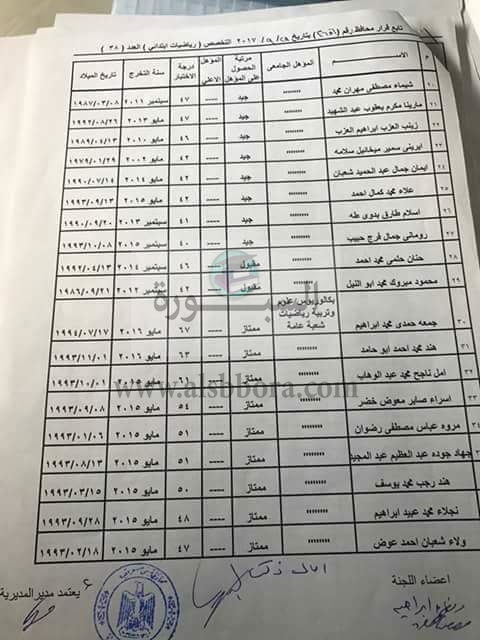 تابع قرار محافظ رقم ( ) بتاريخ / / ٢٠١٧ التخصص ( رياضيات ابتدائي ) العدد ( ٣٨ )
م الاســـم المؤهل الجامعى مرتبة الحصول على المؤهل المؤهل الاعلى درجة الاختبار سنة التخرج تاريخ الميلاد
٢٠ شيماء مصطفى مهران محمد """""""" جيد ---- ٤٧ سبتمبر ٢٠١١ ١٩٨٧/٠٣/٠٨
٢١ مارينا مكرم يعقوب عبد الشهيد """""""" جيد ---- ٤٧ مايو ٢٠١٣ ١٩٩٢/٠٨/٢٦
٢٢ زينب العزب ابراهيم العزب """""""" جيد ---- ٤٦ مايو ٢٠١٠ ١٩٨٩/٠٤/١٣
٢٣ ايرينى سمير ميخائيل سلامه """""""" جيد ---- ٤٢ مايو ٢٠٠٢ ١٩٧٩/٠١/٢٩
٢٤ ايمان جمال عبد الحميد شعبان """""""" جيد ---- ٤٢ مايو ٢٠١٤ ١٩٩٠/٠٧/١٤
٢٥ علاء محمد كمال احمد """""""" جيد ---- ٤٢ مايو ٢٠١٥ ١٩٩٣/٠٩/١٣
٢٦ اسلام طارق بدوى طه """""""" جيد ---- ٤١ سبتمبر ٢٠١٣ ١٩٩٠/٠٩/٢٠
٢٧ رومانى جمال فرج حبيب """""""" جيد ---- ٤٠ سبتمبر ٢٠١٥ ١٩٩٣/١٠/٠٨
٢٨ حنان حتمى محمد احمد """""""" مقبول ---- ٤٦ سبتمبر ٢٠١٤ ١٩٩٢/٠٤/١٣
٢٩ محمود مبروك محمد ابو النيل """""""" مقبول ---- ٤٢ سبتمبر ٢٠١٢ ١٩٨٦/٠٩/٢١
٣٠ جمعه حمدى محمد ابراهيم بكالوريوس علوم وتربية رياضيات شعبة عامة ممتاز ---- ٦٧ مايو ٢٠١٦ ١٩٩٤/٠٧/١٧
٣١ هند محمد احمد ابو حامد """""""" ممتاز ---- ٦٣ مايو ٢٠١٦ ١٩٩٣/١١/٠١
٣٢ امل ناجح محمد عبد الوهاب """""""" ممتاز ---- ٦١ مايو ٢٠١٥ ١٩٩٣/١٠/٠١
٣٣ اسراء صابر معوض خضر """""""" ممتاز ---- ٥٤ مايو ٢٠١٥ ١٩٩٣/٠٩/٠٨
٣٤ مروه عباس مصطفى رضوان """""""" ممتاز ---- ٥١ مايو ٢٠١٥ ١٩٩٣/٠١/٠٦
جهاد جوده عبد العظيم عبد المجيد """""""" ممتاز ---- ٥١ مايو ٢٠١٥ ١٩٩٣/٠٨/١٣
هند رجب محمد يوسف """""""" ممتاز ---- ٥٠ مايو ٢٠١٥ ١٩٩٣/٠٣/١٥
نجلاء محمد عبيد ابراهيم """""""" ممتاز ---- ٤٨ مايو ٢٠١٥ ١٩٩٣/٠٩/٢٨
ولاء شعبان احمد عوض """""""" ممتاز ---- ٤٧ مايو ٢٠١٥ ١٩٩٣/٠٢/١٨
السبورة
www.alsbbora.com
اعضاء اللجنة يعتمد مدير المديرية